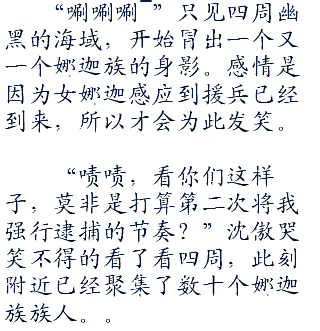 “唰唰唰”只见四周幽
黑的海域，开始冒出一个又
一个娜迦族的身影。感情是
因为女娜迦感应到援兵已经
到来，所以才会为此发笑。
“啧啧，看你们这样
子，莫非是打算第二次将我
强行逮捕的节奏？”沈傲哭
笑不得的看了看四周，此刻
附近已经聚集了数十个娜迦
族族人。。